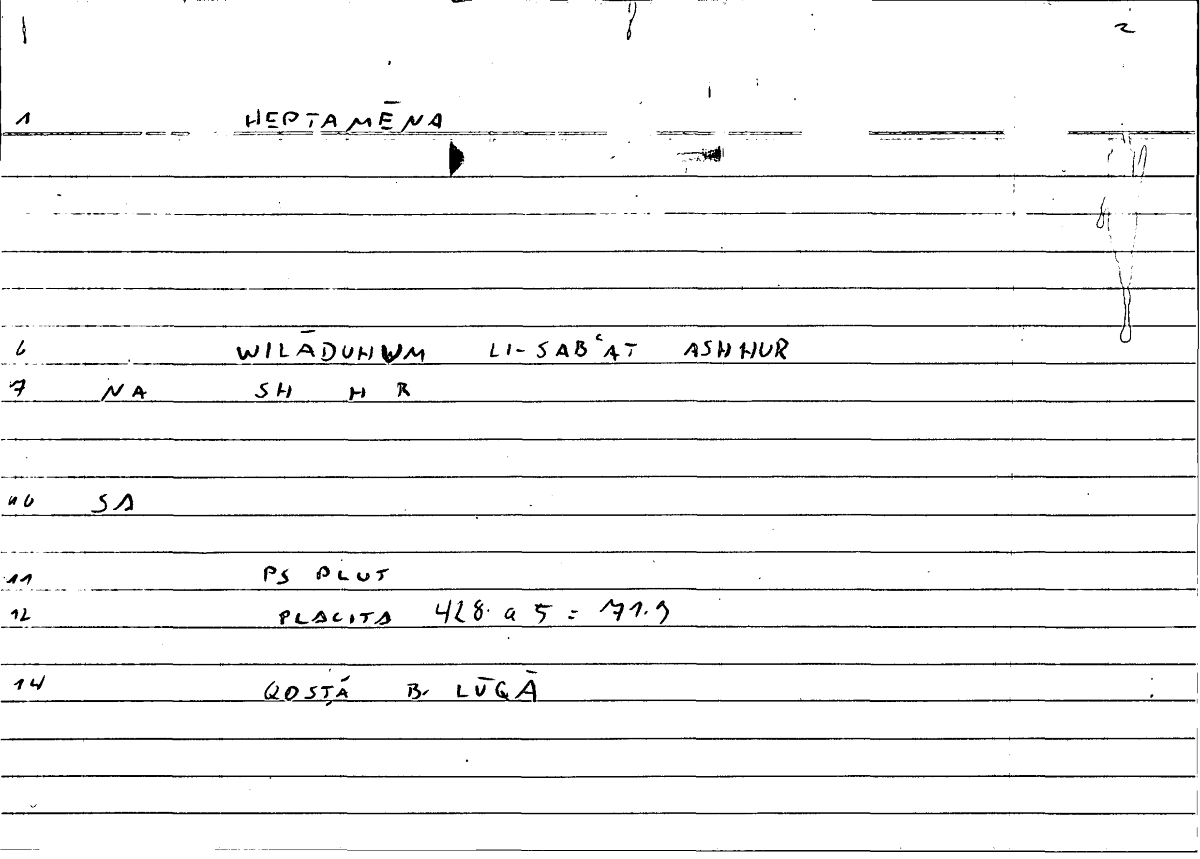 1 2
1 HEPTAMĒNA
6 WILĀDUHUM LI-SABʿAT ASHHUR
7 NA SH H R
10 SA
11 PS PLUT
12 PLACITA 428 a 5 = 71.9
14 QOSṬĀ B. LŪQĀ